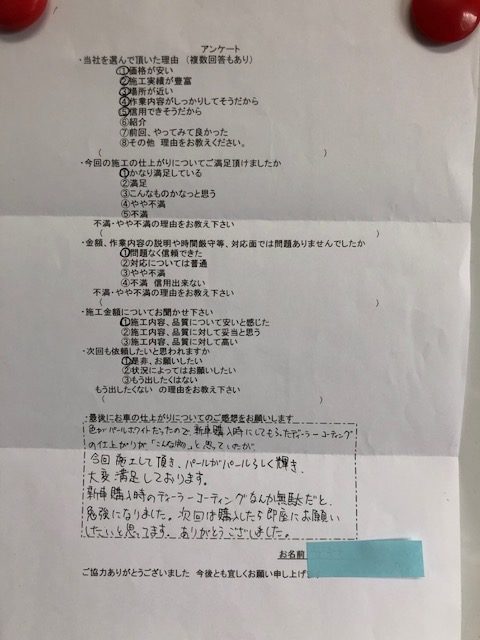 アンケート
・当社を選んで頂いた理由 (複数回答もあり)
①価格が安い
②施工実績が豊富
③場所が近い
④作業内容がしっかりしてそうだから
⑤信用できそうだから
⑥紹介
⑦前回、やってみて良かった
⑧その他 理由をお教えください。
( )
・今回の施工の仕上がりについてご満足頂けましたか
①かなり満足している
②満足
③こんなものかなっと思う
④やや不満
⑤不満
不満・やや不満の理由をお教え下さい
( )
・金額、作業内容の説明や時間厳守等、対応面では問題ありませんでしたか
①問題なく信頼できた
②対応については普通
③やや不満
④不満 信用出来ない
不満・やや不満の理由をお教え下さい
( )
・施工金額についてお聞かせ下さい
①施工内容、品質について安いと感じた
②施工内容、品質に対して妥当と思う
③施工内容、品質に対して高い
・次回も依頼したいと思われますか
①是非、お願いしたい
②状況によってはお願いしたい
③もう出したくはない
もう出したくない の理由をお教え下さい
( )
・最後にお車の仕上がりについてのご感想をお願いします
色がパールホワイトだったので、新車購入時にしてもらったディーラーコーティング
の仕上がりが「こんな物」と思っていたが、
今回施工して頂き、パールがパールらしく輝き、
大変満足しております。
新車購入時のディーラーコーティングなんか無駄だと、
勉強になりました。次回は購入したら即座にお願い
したいと思ってます。ありがとうございました。
お名前
ご協力ありがとうございました 今後とも宜しくお願い申し上げ